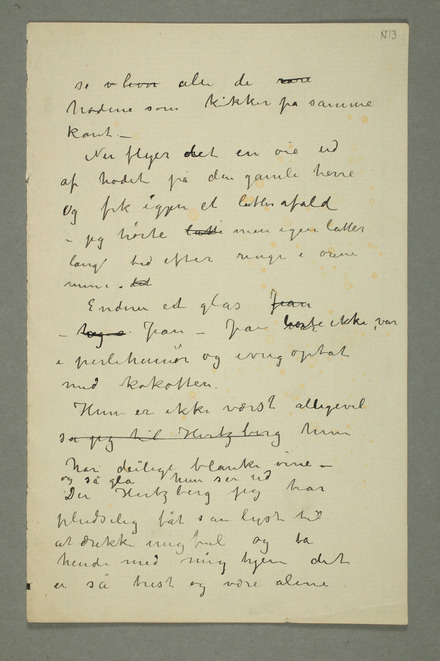 N13
se alle de
hodene som kikker på samme
kant –
Nu flyer det en oie ud
af hodet på den gamle herre
og fik igjen et latterafald
– jeg hörte min egen latter
lang tid efter ringe i orene
mine.
Endnu et glas Jean
– Jean – Jan hörte ikke, var
i perlehumör og ivrig optat
med kokotten.
Hun er ikke værst alligevel
sa jeg til Hertzberg hun
har deilige blanke öine –
og så gla hun ser ud
Du Hertzberg jeg har
pludselig fåt san lyst til
at drikke mig ful og ta
hende med mig hjem det
er så trist og være alene